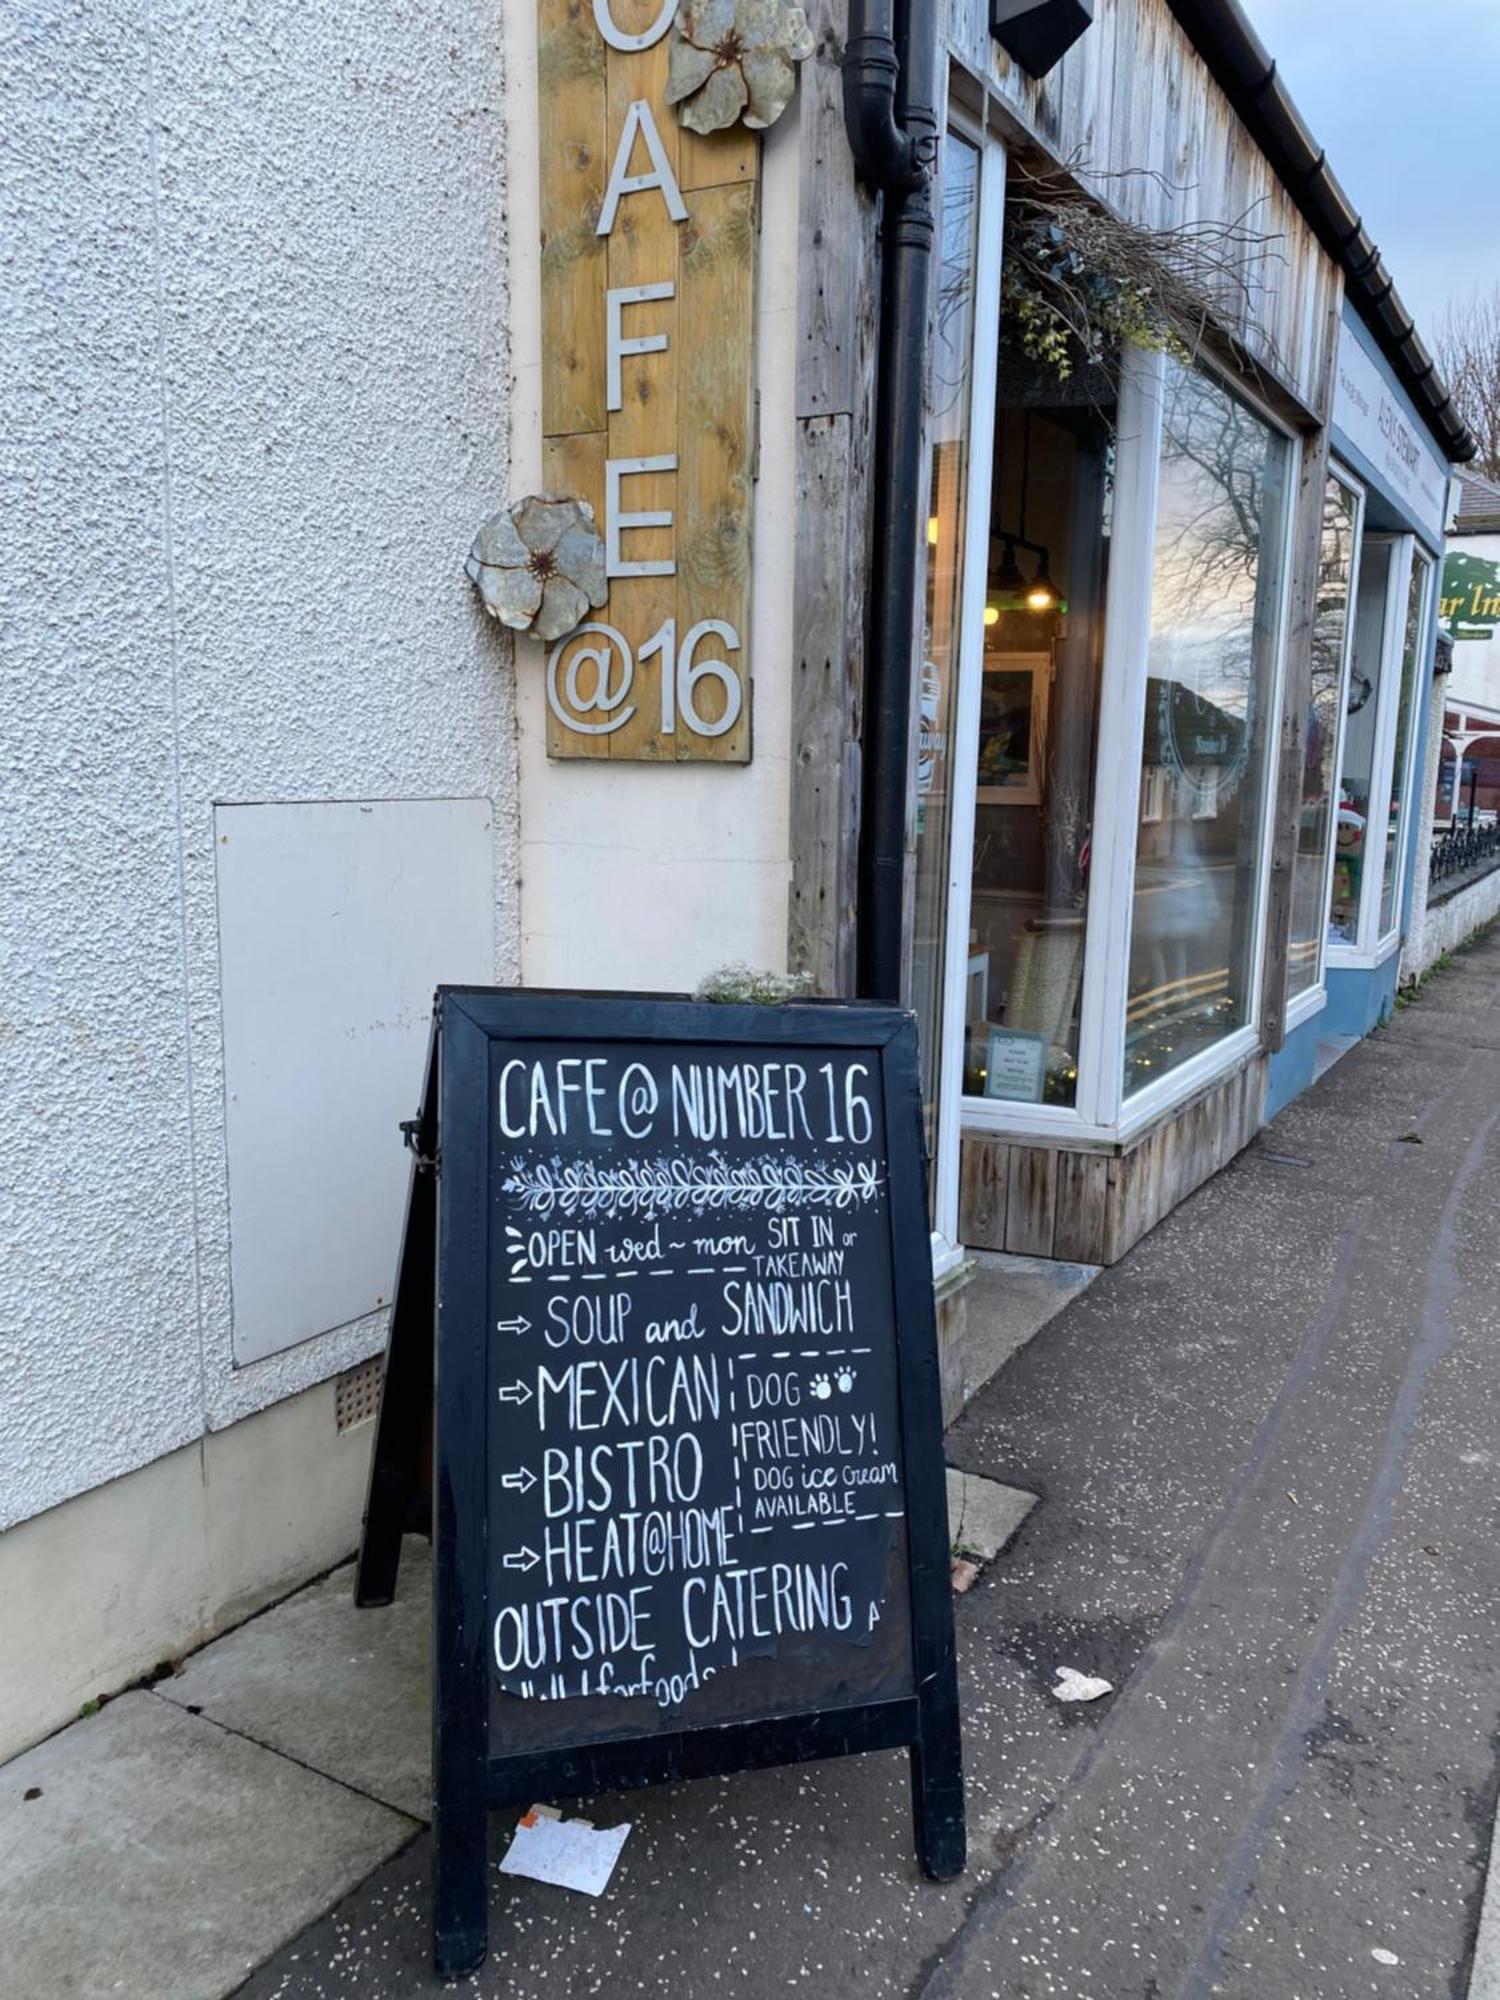 CAFE
@16
CAFE @ NUMBER 16
OPEN wed ~ mon SIT IN or
TAKEAWAY
⇨ SOUP and SANDWICH
⇨ MEXICAN
⇨ BISTRO
⇨ HEAT@HOME
DOG
FRIENDLY!
DOG ice cream
AVAILABLE
OUTSIDE CATERING
Number 16
ALEXIS STEWART